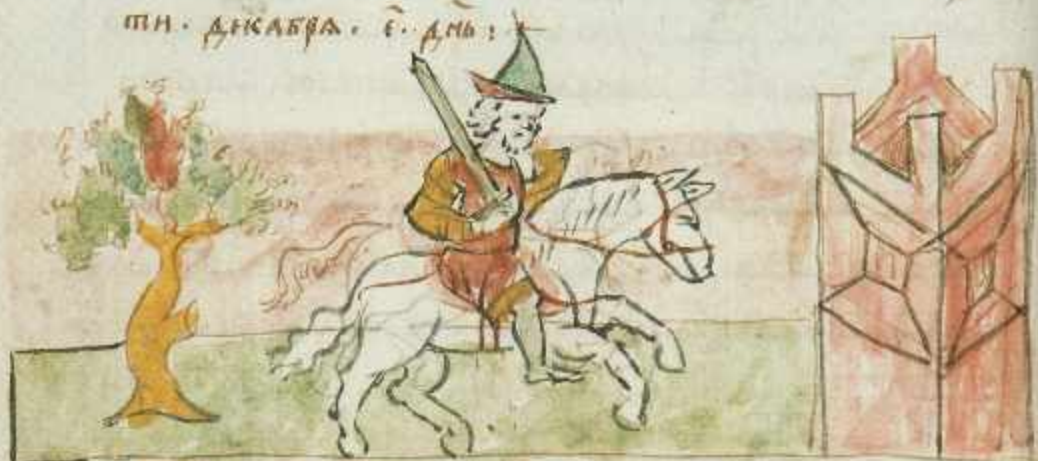 ти · декабря · е҃ · дн҃ь :